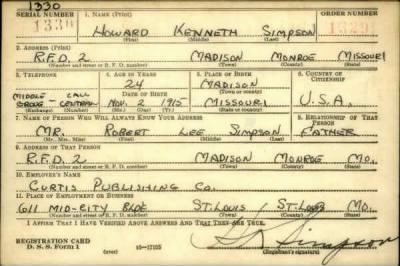 1330
SERIAL NUMBER 1. NAME (Print) ORDER NUMBER
1330 HOWARD KENNETH SIMPSON
(First) (Middle) (Last)
2. ADDRESS (Print)
R.F.D. 2 MADISON MONROE MISSOURI
(Number and street or R. F. D. number) (Town) (County) (State)
3. TELEPHONE 4. AGE IN YEARS 5. PLACE OF BIRTH 6. COUNTRY OF CITIZENSHIP
24 MADISON
MIDDLE CALL DATE OF BIRTH (Town or county)
GROVE - CENTRAL NOV. 2 1915 MISSOURI U.S.A.
(Exchange) (Number) (Mo.) (Day) (Yr.) (State or country)
7. NAME OF PERSON WHO WILL ALWAYS KNOW YOUR ADDRESS 8. RELATIONSHIP OF THAT PERSON
MR. ROBERT LEE SIMPSON FATHER
(Mr., Mrs., Miss) (First) (Middle) (Last)
9. ADDRESS OF THAT PERSON
R.F.D. 2 MADISON MONROE MO.
(Number and street or R. F. D. number) (Town) (County) (State)
10. EMPLOYER'S NAME
CURTIS PUBLISHING CO.
11. PLACE OF EMPLOYMENT OR BUSINESS
611 MID-CITY BLDG ST. LOUIS ST. LOUIS MO.
(Number and street or R. F. D. number) (Town) (County) (State)
I AFFIRM THAT I HAVE VERIFIED ABOVE ANSWERS AND THAT THEY ARE TRUE.
REGISTRATION CARD
D. S. S. Form 1 16-17105 Simpson
(Registrant's signature)